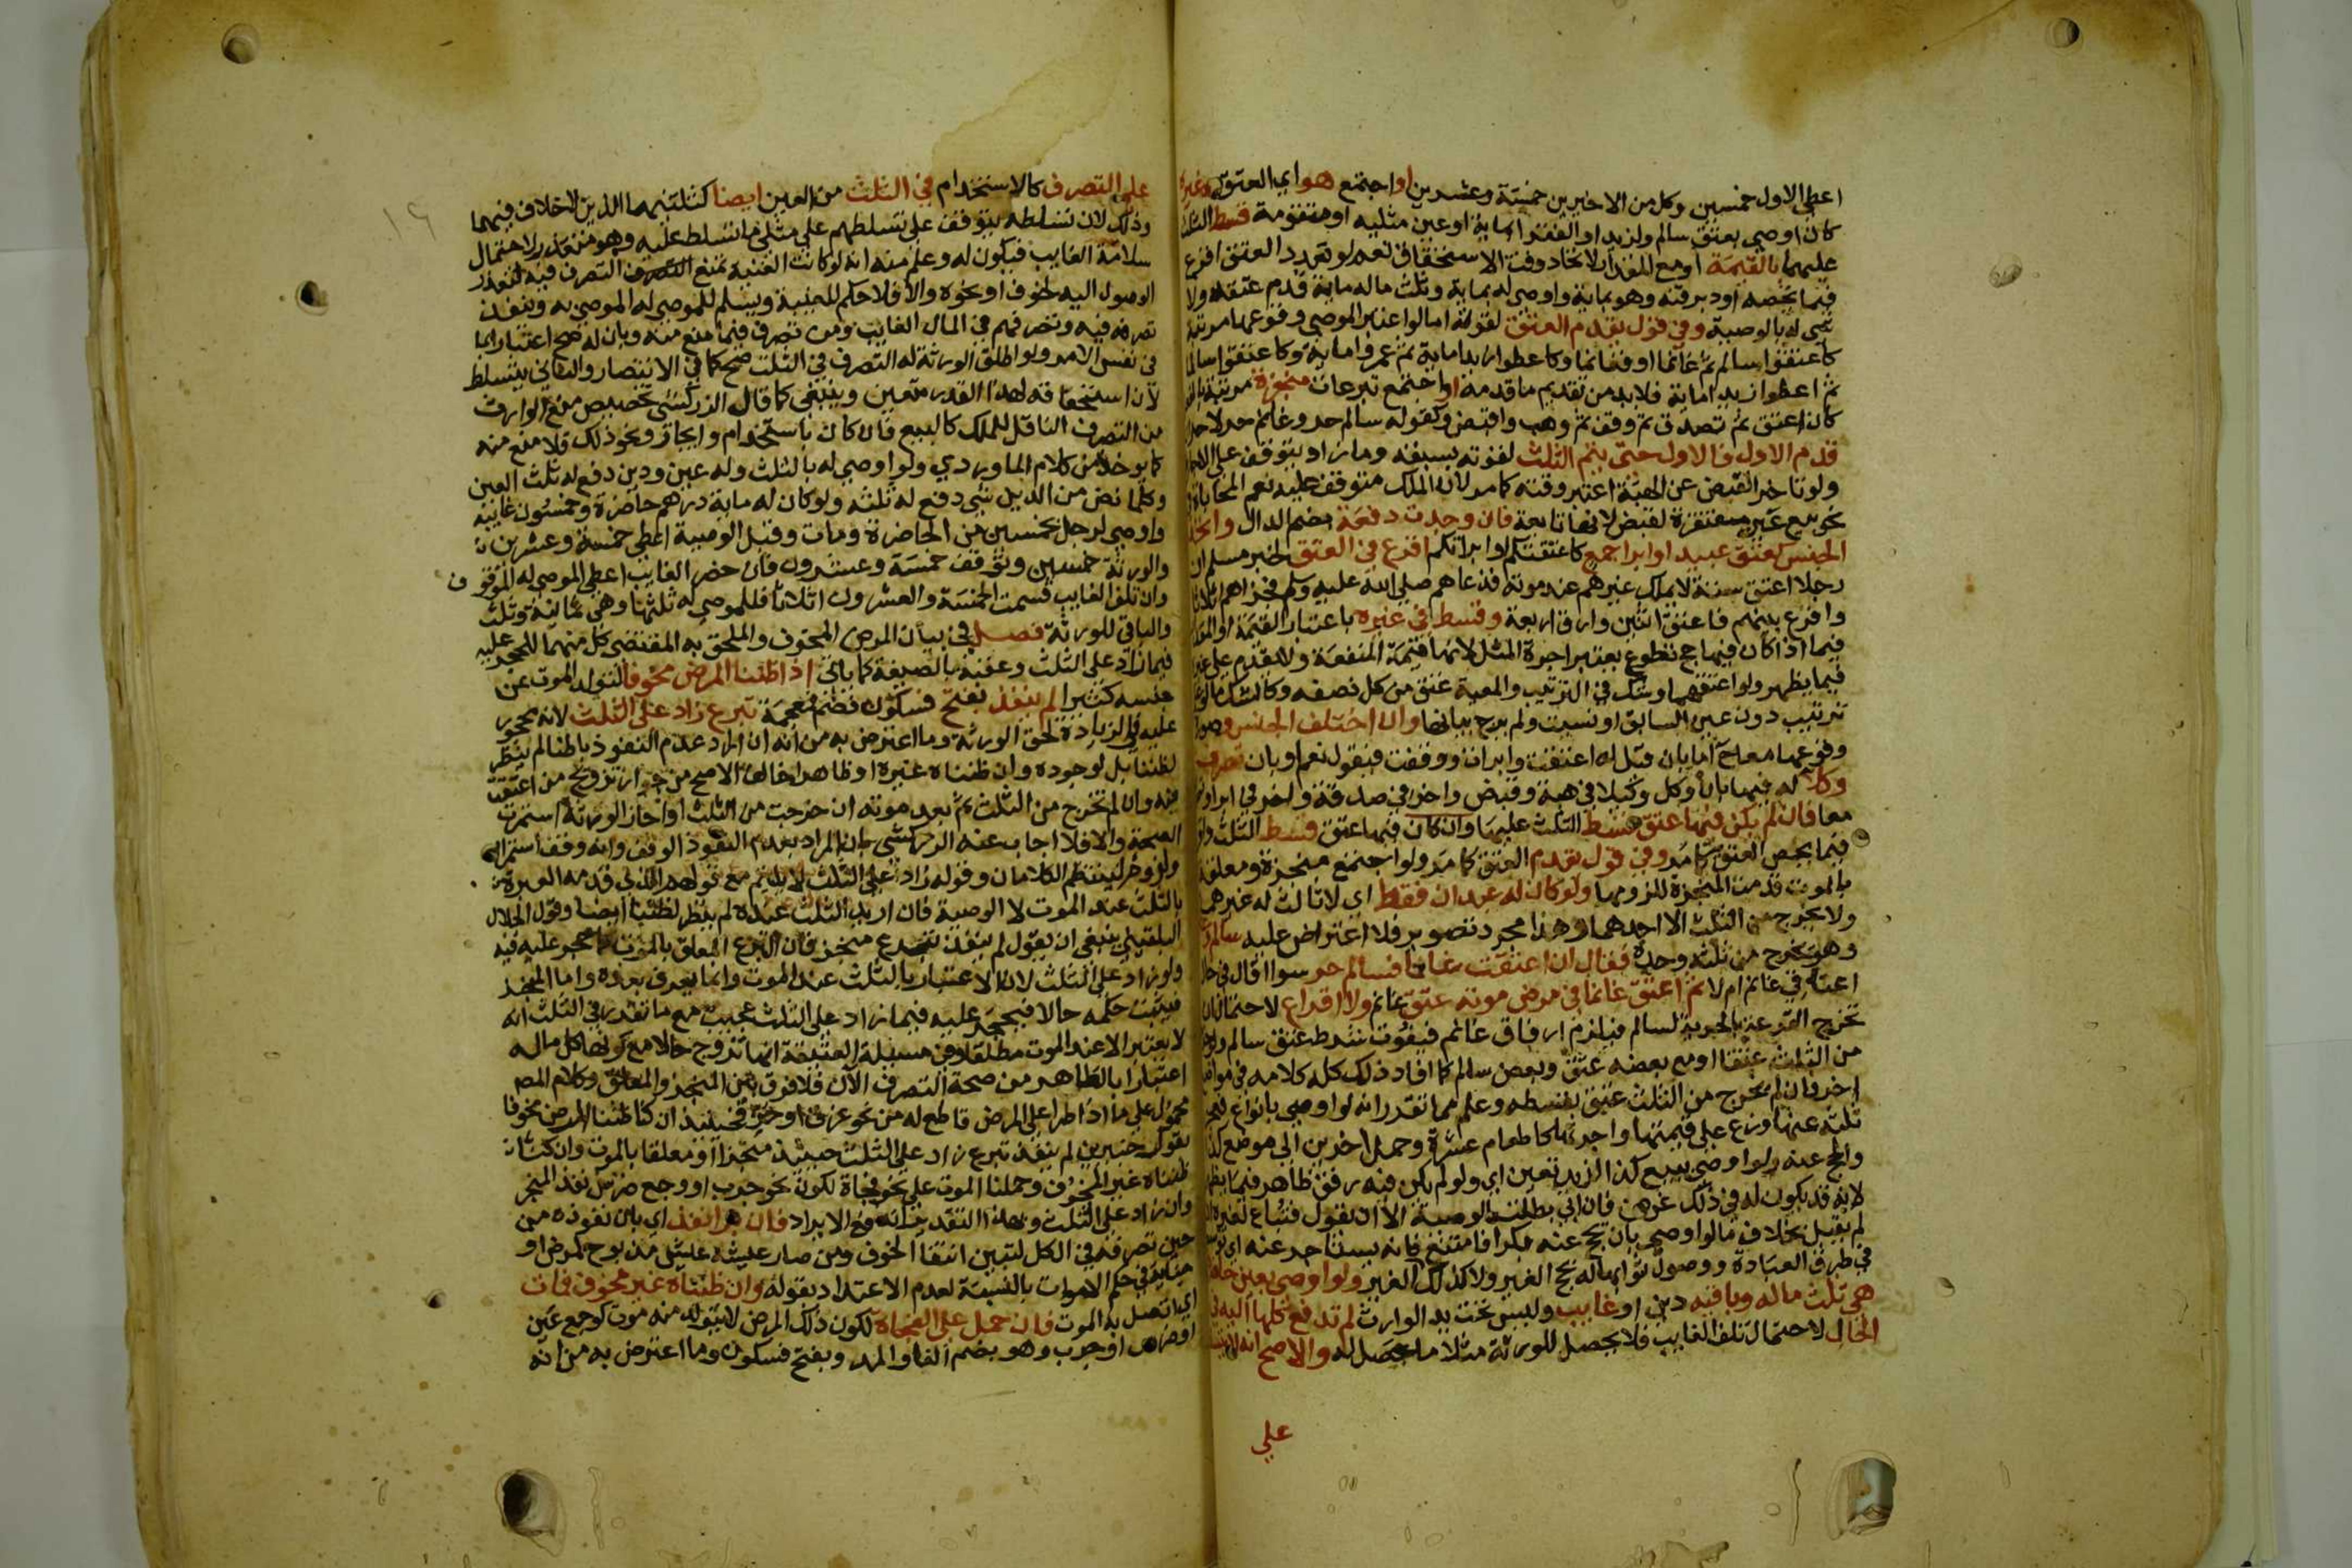 اعطي الاول خمسين وكل من الاخيرين خمسة وعشرين او اجتمع هو اي العتق وغيره
كان اوصي بعتق سالم ولزيد او الفقرا بماية او عين مثلية او متقومة قسط الثلث
عليهما بالقيمة او مع المقدار لاتحاد وقت الاستحقاق نعم لو تعدد العتق اقرع
فيما يخصه اود بر قنه وهو بماية واوصي له بماية وثلث ماله ماية قدم عتقه ولا
شي له بالوصية وفي قول يقدم العتق لقوته اما لو اعتبر الموصي وقوعها مرتبة
كاعتقوا سالما ثم غانما او فغانما وكاعطوا زيدا ماية ثم عمروا ماية وكاعتقوا سالما
ثم اعطوا زيدا ماية فلا بد من تقديم ما قدمه او اجتمع تبرعات منجزة مرتبة
كان اعتق ثم تصدق ثم وقف ثم وهب واقبض وكقوله سالم حر وغانم حر لا حران
قدم الاول فالاول حتى يتم الثلث لقوته بسبقه وما زاد يتوقف على الاجازة
ولو تاخر القبض عن الهبة اعتبر وقته كما مر لان الملك متوقف عليه نعم المحاباة في
نحو بيع غير مفتقرة لقبض لانها تابعة فان وجدت دفعة بضم الدال واتحد
الجنس كعتق عبيد او ابرا جمع كاعتقتكم او ابراتكم اقرع في العتق لخبر مسلم ان
رجلا اعتق ستة لا يملك غيرهم عند موته فدعاهم صلي الله عليه وسلم فجزاهم اثلاثا
واقرع بينهم فاعتق اثنين وارق اربعة وقسط في غيره باعتبار القيمة او المقدار
فيما اذا كان فيها حج تطوع يعتبر اجرة المثل لانها قيمة المنفعة ولا يقدم على غيره
فيما يظهر ولو اعتقهما وشك في الترتيب والمعية عتق من كل نصفه وكالشك ما لو علم
ترتيب دون عين السابق او نسيت ولم يرج بيانها وان اختلف الجنس وصور
وقوعها معا اما بان قيل له اعتقت وابرات ووقفت فيقول نعم او بان تصرف
وكلا له فيها بان وكل وكيلا في هبة وقبض واخر في صدقة واخر في ابرا
معا فان لم يكن فيها عتق قسط الثلث عليها وان كان فيها عتق قسط الثلث
فيما يخص العتق كما مر وفي قول يقدم العتق كما مر ولو اجتمع منجزة ومعلقة
بالموت قدمت المنجزة للزومها ولو كان له عبدان فقط اي لا ثالث له غيرهما
ولا يخرج من الثلث الا احدهما وهذا مجرد تصوير فلا اعتراض عليه سالم
وهو يخرج من ثلثه وحده فقال ان اعتقت غانما فسالم حر سوا اقال في حال
اعتاقي غانم ام لا ثم اعتق غانما في مرض موته عتق غانم ولا اقراع لاحتمال ان
تخرج القرعة بالحرية لسالم فيلزم ارقاق غانم فيفوت شرط عتق سالم
من الثلث عتقا او مع بعضه عتق وبعض سالم كما افاد ذلك كله كلامه في مواضع
اخر وان لم يخرج من الثلث عتق بقسطه وعلم مما تقرر انه لو اوصي بانواع
ثلثه عنها وزع على قيمتها واجرتها كاطعام عشرة وحمل اخرين الي موضع كذا
والحج عنه ولو اوصي ببيع كذا لزيد تعين اي ولو لم يكن فيه رفق ظاهر فيما يظهر
لانه قد يكون له في ذلك غرض فان ابي بطلت الوصية الا ان يقول فتباع لغيره
لم يقبل بخلاف ما لو اوصي بان يحج عنه بكرا فامتنع فانه يستاجر عنه اي
في طرق العبادة ووصول ثوابها له بحج الغير ولا كذلك الغير ولو اوصي بعين حاضرة
هي ثلث ماله وباقيه دين او غايب وليس تحت يد الوارث لم تدفع كلها اليه في
الحال لاحتمال تلف الغايب فلا يحصل للورثة مثلا ما حصل له والاصح انه لا يتسلط
علي
١٦
علي التصرف كالاستخدام في الثلث من العين ايضا كثلثيهما الذين لا خلاف فيهما
وذلك لان تسلطه يتوقف على تسلطهم علي مثلي ما تسلط عليه وهو متعذر لاحتمال
سلامة الغايب فيكون له وعلم منه انه لو كانت الغيبة تمنع التصرف فيه لتعذر
الوصول اليه لخوف او نحوه والا فلا حكم للغيبة ويسلم للموصي له الموصي به وينفذ
تصرفه فيه وتصرفهم في المال الغايب ومن تصرف فيما منع منه وبان له صح اعتبارا بما
في نفس الامر ولو اطلق الورثة له التصرف في الثلث صح كما في الانتصار والثاني يتسلط
لان استحقاقه لهذا القدر متعين وينبغي كما قال الزركشي تخصيص منع الوارث
من التصرف الناقل للملك كالبيع فان كان باستخدام وايجار ونحو ذلك فلا منع منه
كما يوخذ من كلام الماوردي ولو اوصي له بالثلث وله عين ودين دفع له ثلث العين
وكلما نض من الدين شي دفع له ثلثه ولو كان له ماية درهم حاضرة وخمسون غايبة
واوصي لرجل بخمسين من الحاضرة ومات وقبل الوصية اعطي خمسة وعشرين
والورثة خمسين وتوقف خمسة وعشرون فان حضر الغايب اعطي الموصي له الموقوف
وان تلف الغايب قسمت الخمسة والعشرون اثلاثا فللموصي له ثلثها وهي ثمانية وثلث
والباقي للورثة فصل في بيان المرض المخوف والملحق به المقتضي كل منهما للحجر عليه
فيما زاد على الثلث وعقبه بالصيغة كما ياتي اذا ظننا المرض مخوفا لتولد الموت عن
جنسه كثيرا لم ينفذ بفتح فسكون فضم فمعجمة تبرع زاد على الثلث لانه محجور
عليه في الزيادة لحق الورثة وما اعترض به من انه ان اراد عدم النفوذ باطنا لم ينظر
لظننا بل لوجوده وان ظنناه غيره او ظاهرا خالف الاصح من جواز تزويج من اعتقت
فيه وان لم تخرج من الثلث ثم بعد موته ان خرجت من الثلث او اجاز الورثة استمرت
الصحة والا فلا اجاب عنه الزركشي بان المراد بعدم النفوذ الوقف وانه وقف استمرار
ولزوم لينتظم الكلامان وقوله زاد على الثلث لا يلايم مع قولهم الذي قدمه العبرة
بالثلث عند الموت لا الوصية فان اريد الثلث عنده لم ينظر لظننا ايضا وقول الجلال
البلقيني ينبغي ان يقول لم ينفذ تبرع منجز فان التبرع المعلق بالموت لا حجر عليه فيه
ولو زاد على الثلث لان الاعتبار بالثلث عند الموت وانما يعرف بعده واما المنجز
فيثبت حكمه حالا فيحجر عليه فيما زاد على الثلث عجيب مع ما تقدر في الثلث انه
لا يعتبر الا عند الموت مطلقا وفي مسيلة العتيقة انها تزوج حالا مع كونها كل ماله
اعتبارا بالظاهر من صحة التصرف الآن فلا فرق بين المنجز والمعلق وكلام المص
محمول علي ما اذا طرا على المرض قاطع له من نحو غرق او حرق فحينيذ ان كنا ظننا المرض مخوفا
بقول خبيرين لم ينفذ تبرع زاد علي الثلث حينيذ منجزا او معلقا بالموت وان كنا
ظنناه غير المخوف وحملنا الموت على نحو فجاة لكونه نحو جرب او وجع ضرس نفذ المنجز
وان زاد على الثلث وبهذا التقدير انه مع الايراد فان برا نفذ اي بان نفوذه من
حين تصرفه في الكل لتبين انتفا الخوف ومن صار عيشه عيش مذبوح لمرض او
جناية في حكم الاموات بالنسبة لعدم الاعتداد بقوله وان ظنناه غير مخوف فمات
اي اتصل به الموت فان حمل علي الفجاة لكون ذلك المرض لا يتولد منه موت كوجع عين
او ضرس او جرب وهو بضم الفا والمد وبفتح فسكون وما اعترض به من انه